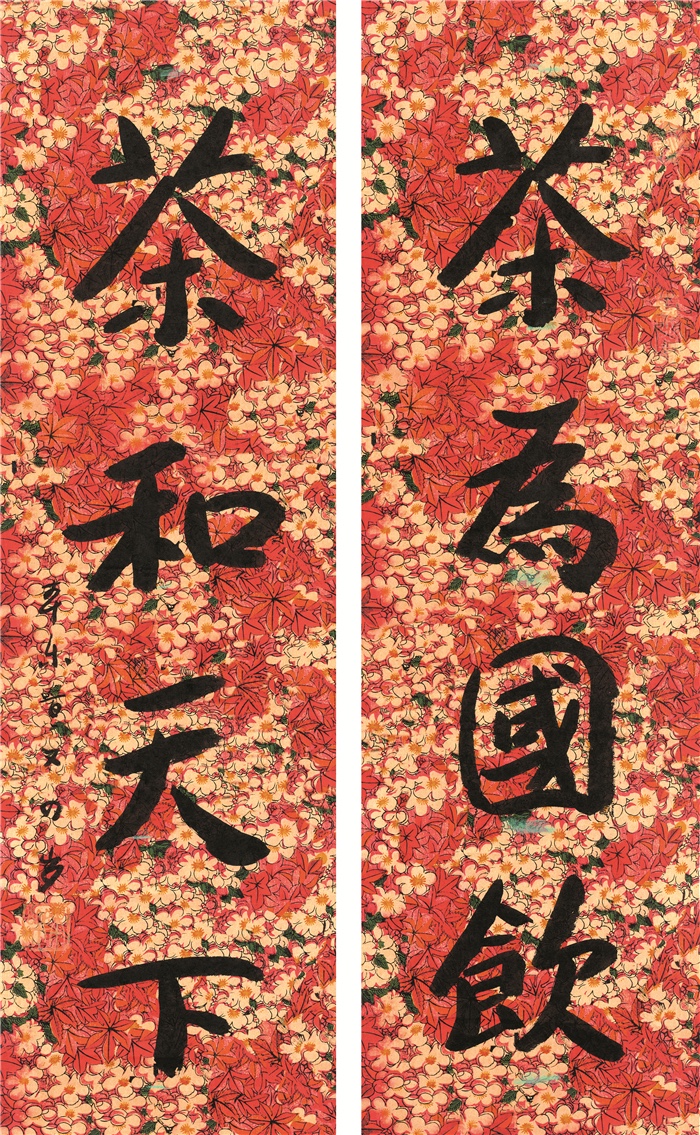 茶為國飲
茶和天下